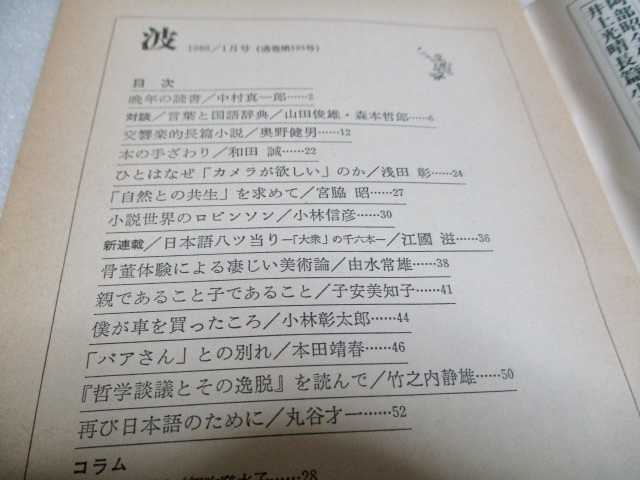 波 1986/1月号 (通巻第193号)
目 次
晩年の読書/中村真一郎……2
対談/言葉と国語辞典/山田俊雄・森本哲郎……6
交響楽的長篇小説/奥野健男……12
本の手ざわり/和田 誠……22
ひとはなぜ「カメラが欲しい」のか/浅田 彰……24
「自然との共生」を求めて/宮脇 昭……27
小説世界のロビンソン/小林信彦……30
新連載/日本語八ツ当り―「大衆」の千六本―/江國 滋……36
骨董体験による凄じい美術論/由水常雄……38
親であること子であること/子安美知子……41
僕が車を買ったころ/小林彰太郎……44
「バアさん」との別れ/本田靖春……46
『哲学談議とその逸脱』を読んで/竹之内静雄……50
再び日本語のために/丸谷才一……52
コラム
……28
井上光晴長篇小